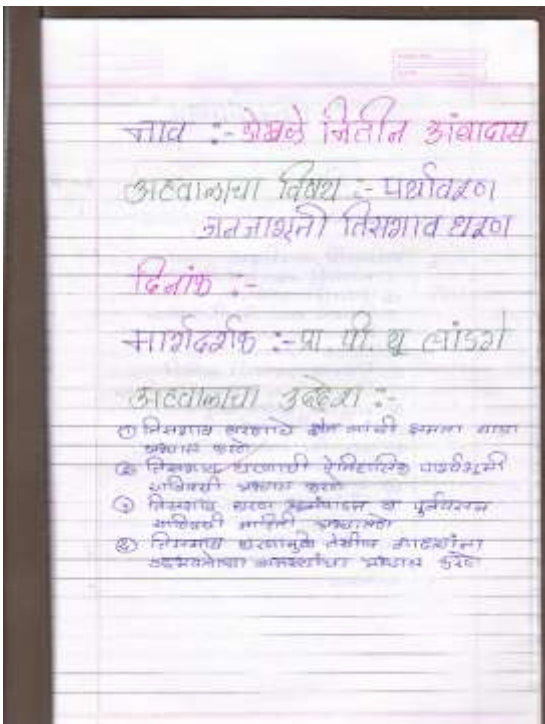 नाव :- शेळके नितीन अंबादास
अहवालाचा विषय :- पर्यावरण
जनजागृती तिसगाव धरण
दिनांक :-
मार्गदर्शक :- प्रा. पी. यू लांडगे
अहवालाचा उद्देश :-
① तिसगाव धरणाचे क्षेत्र क्षमता याचा
अभ्यास करणे
② तिसगाव धरणाची ऐतिहासिक पार्श्वभूमी
याविषयी अभ्यास करणे
③ तिसगाव धरण व पुर्नवसन
याविषयी माहिती अभ्यासणे
④ तिसगाव धरणामुळे तेथील
अभ्यास करणे